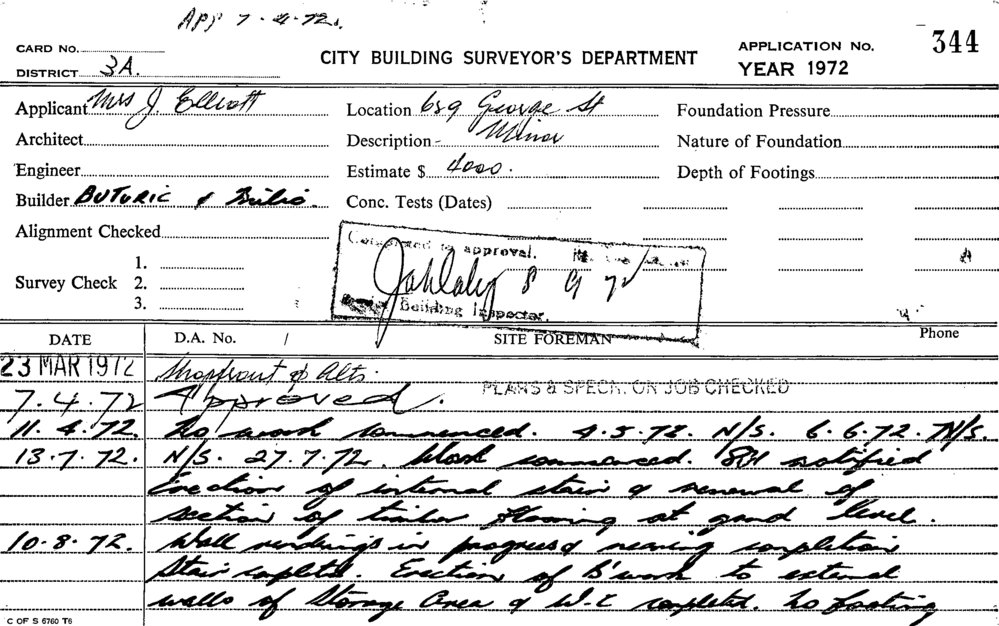 App 7.4.72.
CARD No.
DISTRICT 3A.
CITY BUILDING SURVEYOR'S DEPARTMENT
APPLICATION No. 344
YEAR 1972
Applicant Mrs J. Elliott
Location 689 George St
Foundation Pressure
Architect
Description - Minor
Nature of Foundation
Engineer
Estimate $ 4000.
Depth of Footings
Builder BUTURIC &
Conc. Tests (Dates)
Alignment Checked
Completed to approval.
8 9 72
Building Inspector.
Survey Check 1.
2.
3.
DATE D.A. No. / SITE FOREMAN Phone
23 MAR 1972 Shopfront & Alts.
PLANS & SPECN. ON JOB CHECKED
7.4.72 Approved.
11.4.72. No work commenced. 4.5.72. N/S. 6.6.72. N/S.
13.7.72. N/S. 27.7.72. Work commenced. notified
Erection of internal stair & renewal of
section of timber flooring at gand level.
10.8.72. Wall rendings in progress & nearing completion
Stair complete. Erection of B'work to external
walls of Storage Area & W.C completed. No footing
C OF S 6760 T6